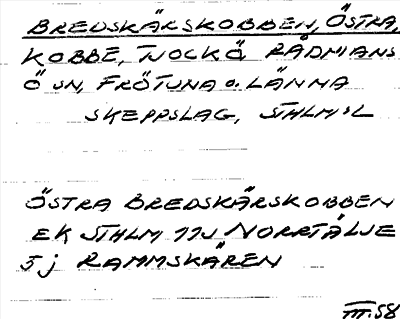 BREDSKÄRSKOBBEN, ÖSTRA,
KOBBE, TJOCKÖ, RÅDMANS
Ö SN, FRÖTUNA o. LÄNNA
SKEPPSLAG, STHLMS L
ÖSTRA BREDSKÄRSKOBBEN
EK STHLM 11J NORRTÄLJE
5j RAMMSKÄREN
III.58